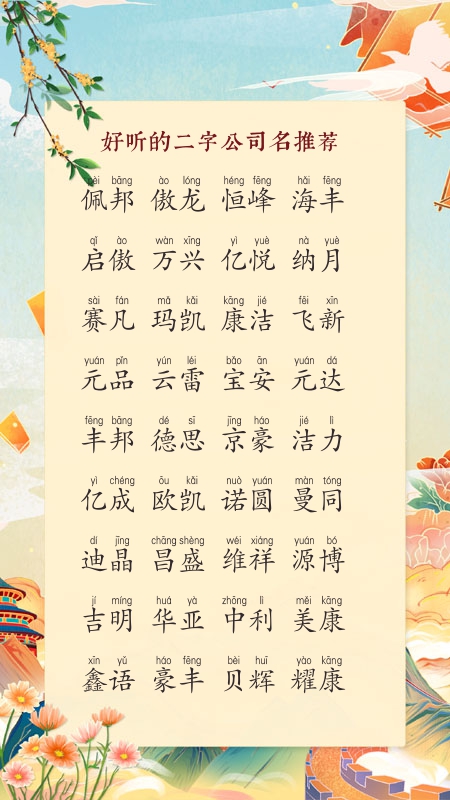 好听的二字公司名推荐
pèi bāng ào lóng héng fēng hǎi fēng
佩邦 傲龙 恒峰 海丰
qǐ ào wàn xīng yì yuè nà yuè
启傲 万兴 亿悦 纳月
sài fán mǎ kǎi kāng jié fēi xīn
赛凡 玛凯 康洁 飞新
yuán pǐn yún léi bǎo ān yuán dá
元品 云雷 宝安 元达
fēng bāng dé sī jīng háo jié lì
丰邦 德思 京豪 洁力
yì chéng ōu kǎi nuò yuán màn tóng
亿成 欧凯 诺圆 曼同
dí jīng chāng shèng wéi xiáng yuán bó
迪晶 昌盛 维祥 源博
jí míng huá yà zhōng lì měi kāng
吉明 华亚 中利 美康
xīn yǔ háo fēng bèi huī yào kāng
鑫语 豪丰 贝辉 耀康